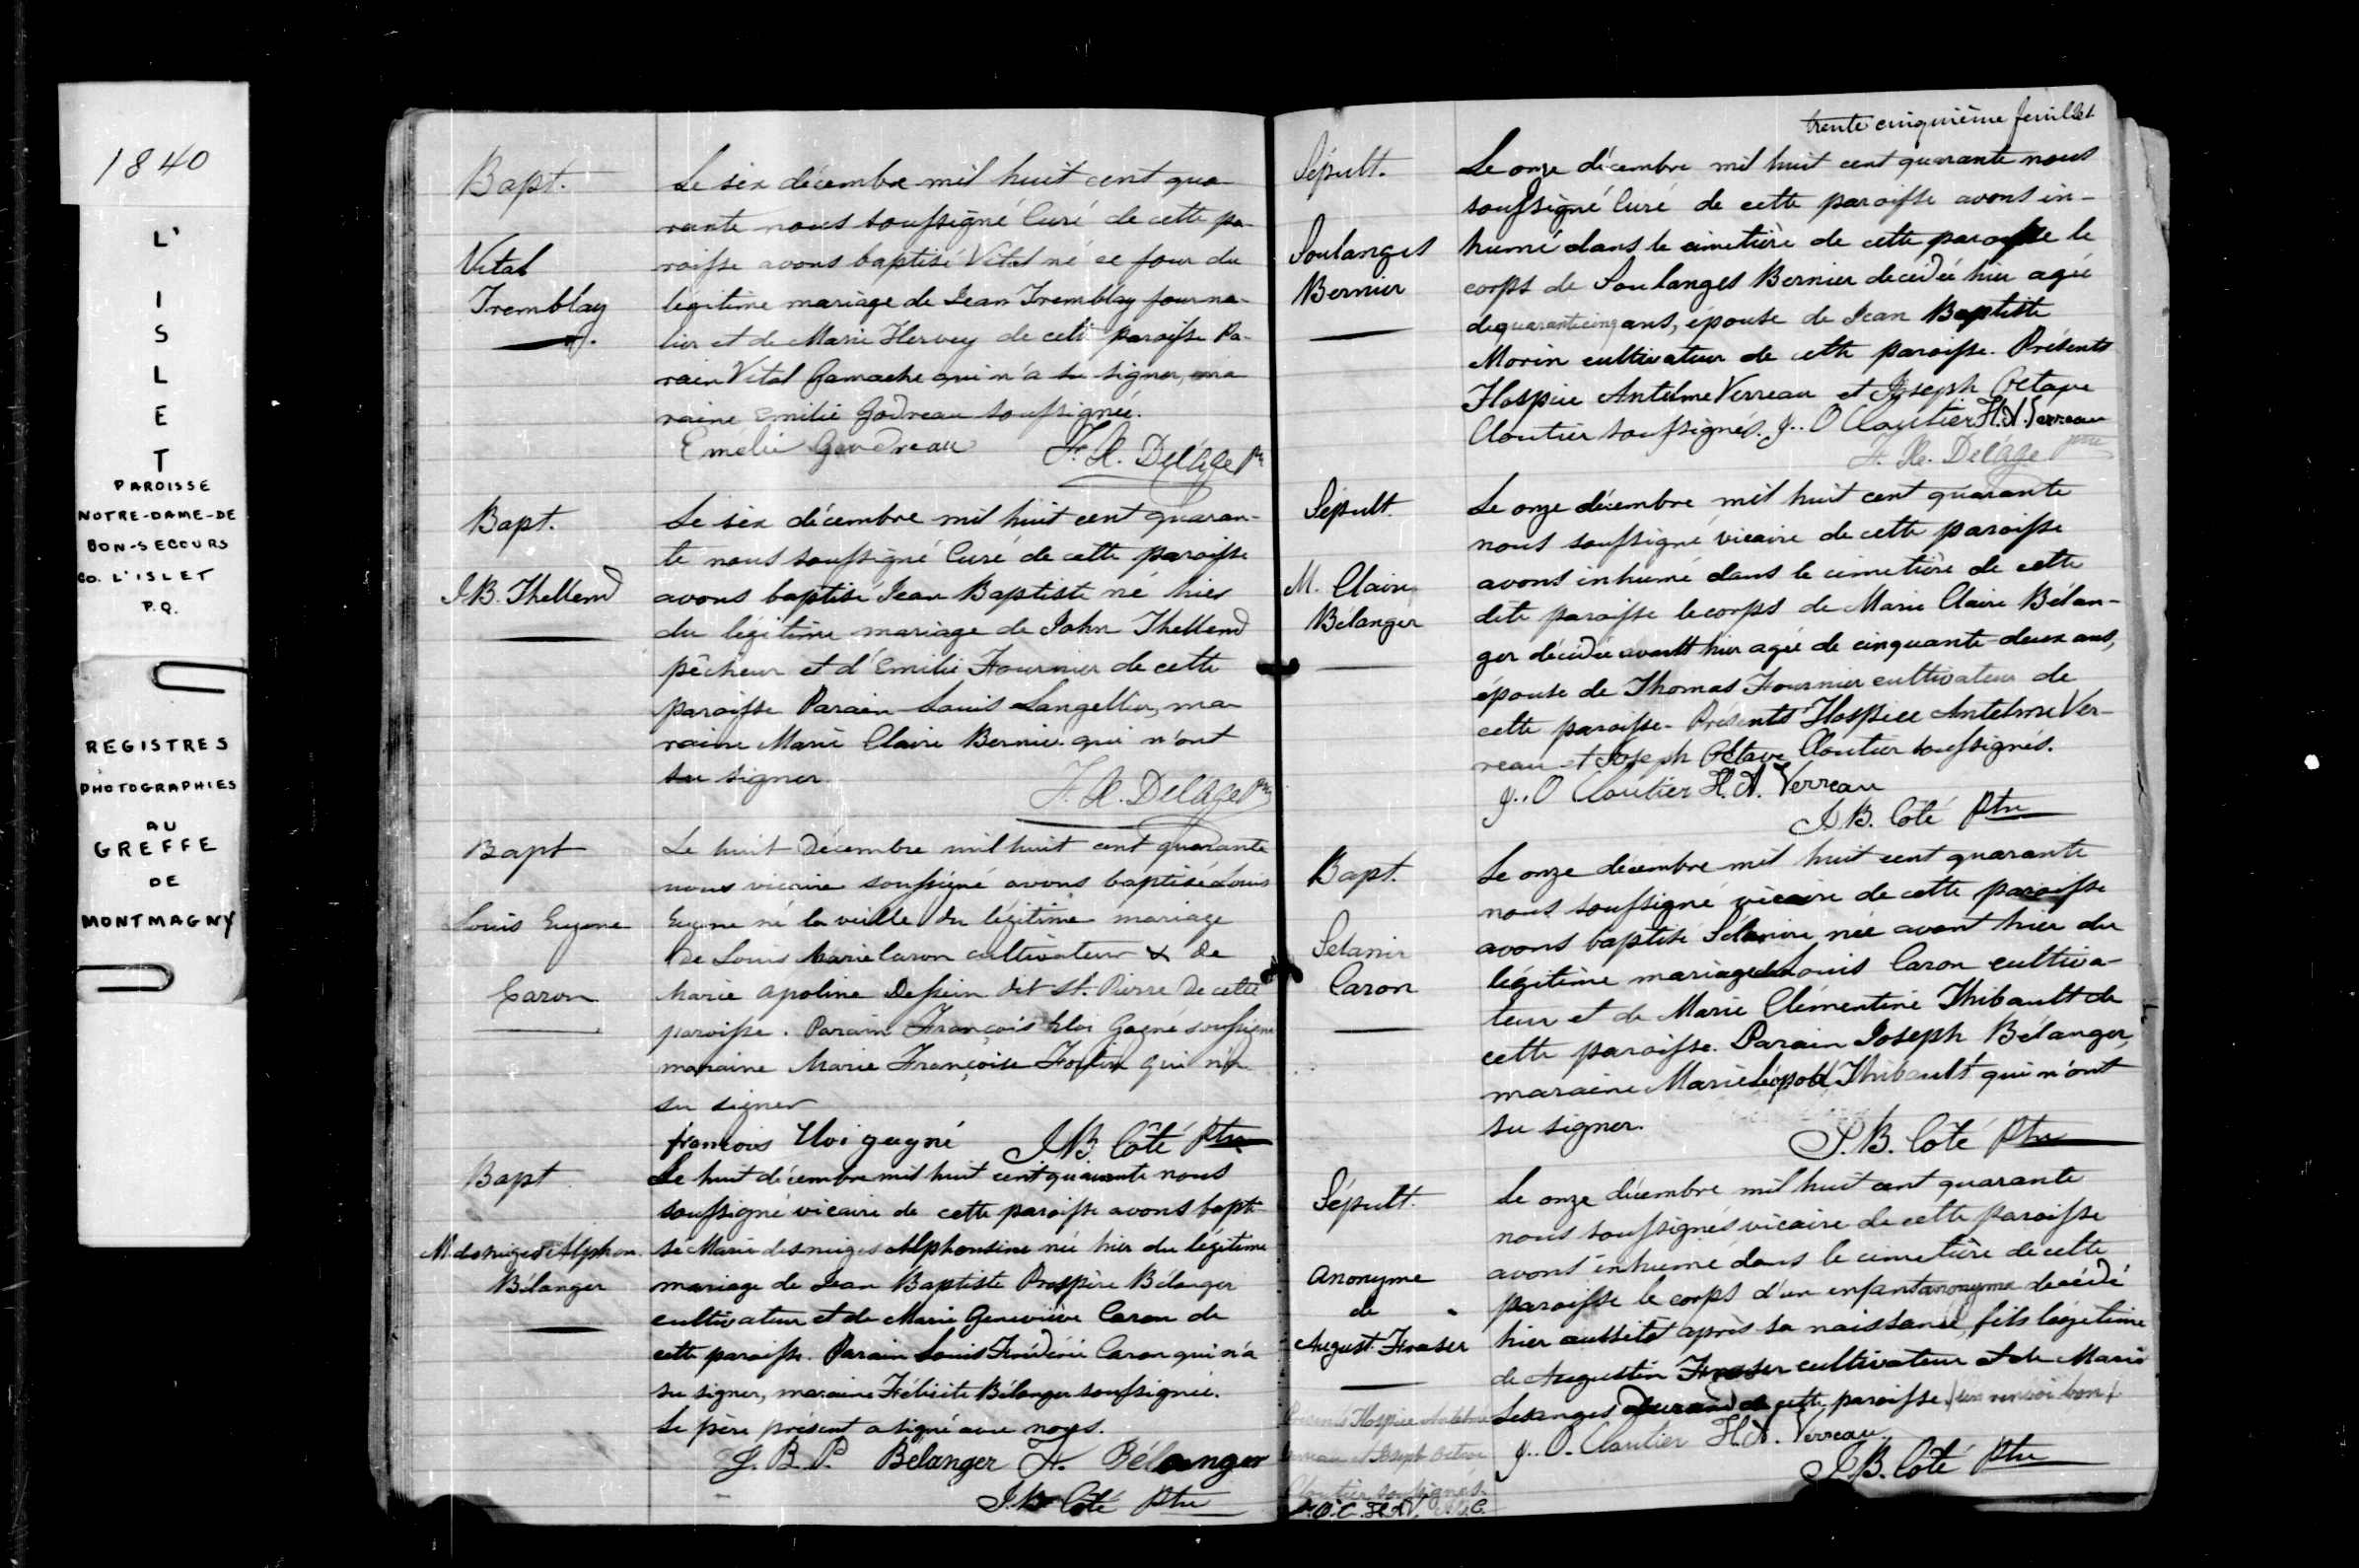 1840
L'
I
S
L
E
T
PAROISSE
NOTRE-DAME-DE
BON-SECOURS
CO. L'ISLET
P.Q.
REGISTRES
PHOTOGRAPHIES
AU
GREFFE
DE
MONTMAGNY
Bapt.
Vital
Tremblay
Le six décembre mil huit cent qua-
rante nous soussigné Curé de cette pa-
roisse avons baptisé Vital né ce jour du
légitime mariage de Jean Tremblay journa-
lier et de Marie Hervey de cette paroisse Pa-
rain Vital Gamache qui n'a su signer, ma
raine Emilie Godreau soussignée.
Emélie Goudreau F. X. Delâge Ptre
Bapt.
J.B. Thellend
Le six décembre mil huit cent quaran-
te nous soussigné Curé de cette paroisse
avons baptisé Jean Baptiste né hier
du légitime mariage de John Thellend
pêcheur et d'Emilie Fournier de cette
paroisse Parain Louis Langellier, ma
raine Marie Claire Bernier qui n'ont
su signer
F. X. Delâge Ptre
Bapt
Louis Eugene
Caron
Le huit Décembre mil huit cent quarante
nous vicaire soussigné avons baptisé Louis
Eugene né la veille du légitime mariage
de Louis Marie Caron cultivateur & de
Marie Apoline Dessein dit St. Pierre de cette
paroisse. Parain François Eloi Gagné soussigné
maraine Marie Françoise Fortin qui n'a
su signer
françois Eloi gagné J B Côté Ptre
Bapt
M. des neiges Alphon.
Bélanger
Le huit décembre mil huit cent quarante nous
soussigné vicaire de cette paroisse avons bapti-
sé Marie des neiges Alphonsine née hier du légitime
mariage de Jean Baptiste Prospère Bélanger
cultivateur et de Marie Geneviève Caron de
cette paroisse. Parain Louis Frédéric Caron qui n'a
su signer, maraine Félicité Bélanger soussignée.
Le père présent a signé avec nous.
J. B. P. Bélanger F. Bélanger
J. B Côté Ptre
trente cinquième feuillet
Sépult.
Soulanges
Bernier
Le onze décembre mil huit cent quarante nous
soussigné Curé de cette paroisse avons in-
humé dans le cimetière de cette paroisse le
corps de Soulanges Bernier decédée hier agée
de quarante cinq ans, épouse de Jean Baptiste
Morin cultivateur de cette paroisse. Présents
Hospice Antelme Verreau et Joseph Octave
Cloutier soussignés. J.. O Cloutier H. A. Verreau
F. X. Delâge ptre
Sépult.
M. Claire
Bélanger
Le onze décembre mil huit cent quarante
nous soussigné vicaire de cette paroisse
avons inhumé dans le cimetière de cette
dite paroisse le corps de Marie Claire Bélan-
ger décédée avant hier agée de cinquante-deux ans,
épouse de Thomas Fournier cultivateur de
cette paroisse. Présents Hospice Antelme Ver-
reau et Joseph Octave Cloutier soussignés.
J.. O Cloutier H. A. Verreau
J B. Côté Ptre
Bapt.
Selanir
Caron
Le onze décembre mil huit cent quarante
nous soussigné vicaire de cette paroisse
avons baptisé Sélanire née avant hier du
légitime mariage de Louis Caron cultiva-
teur et de Marie Clémentine Thibault de
cette paroisse. Parain Joseph Bélanger,
maraine Marie Léopold Thibault qui n'ont
su signer.
J. B. Côté Ptre
Sépult.
Anonyme
de
August. Fraser
Le onze décembre mil huit cent quarante
nous soussignés vicaire de cette paroisse
avons inhumé dans le cimetière de cette
paroisse le corps d'un enfant anonyme décédé
hier aussitôt après sa naissance, fils légitime
de Augustin Fraser cultivateur et de Marie
Desanges Durand de cette paroisse. un renvoi bon.
J.. O. Cloutier H. A. Verreau
J B. Côté Ptre
Présents Hospice Antelme
Verreau et Joseph Octave
Cloutier soussignés.
J.O.C. H.A.V. J.B.C.